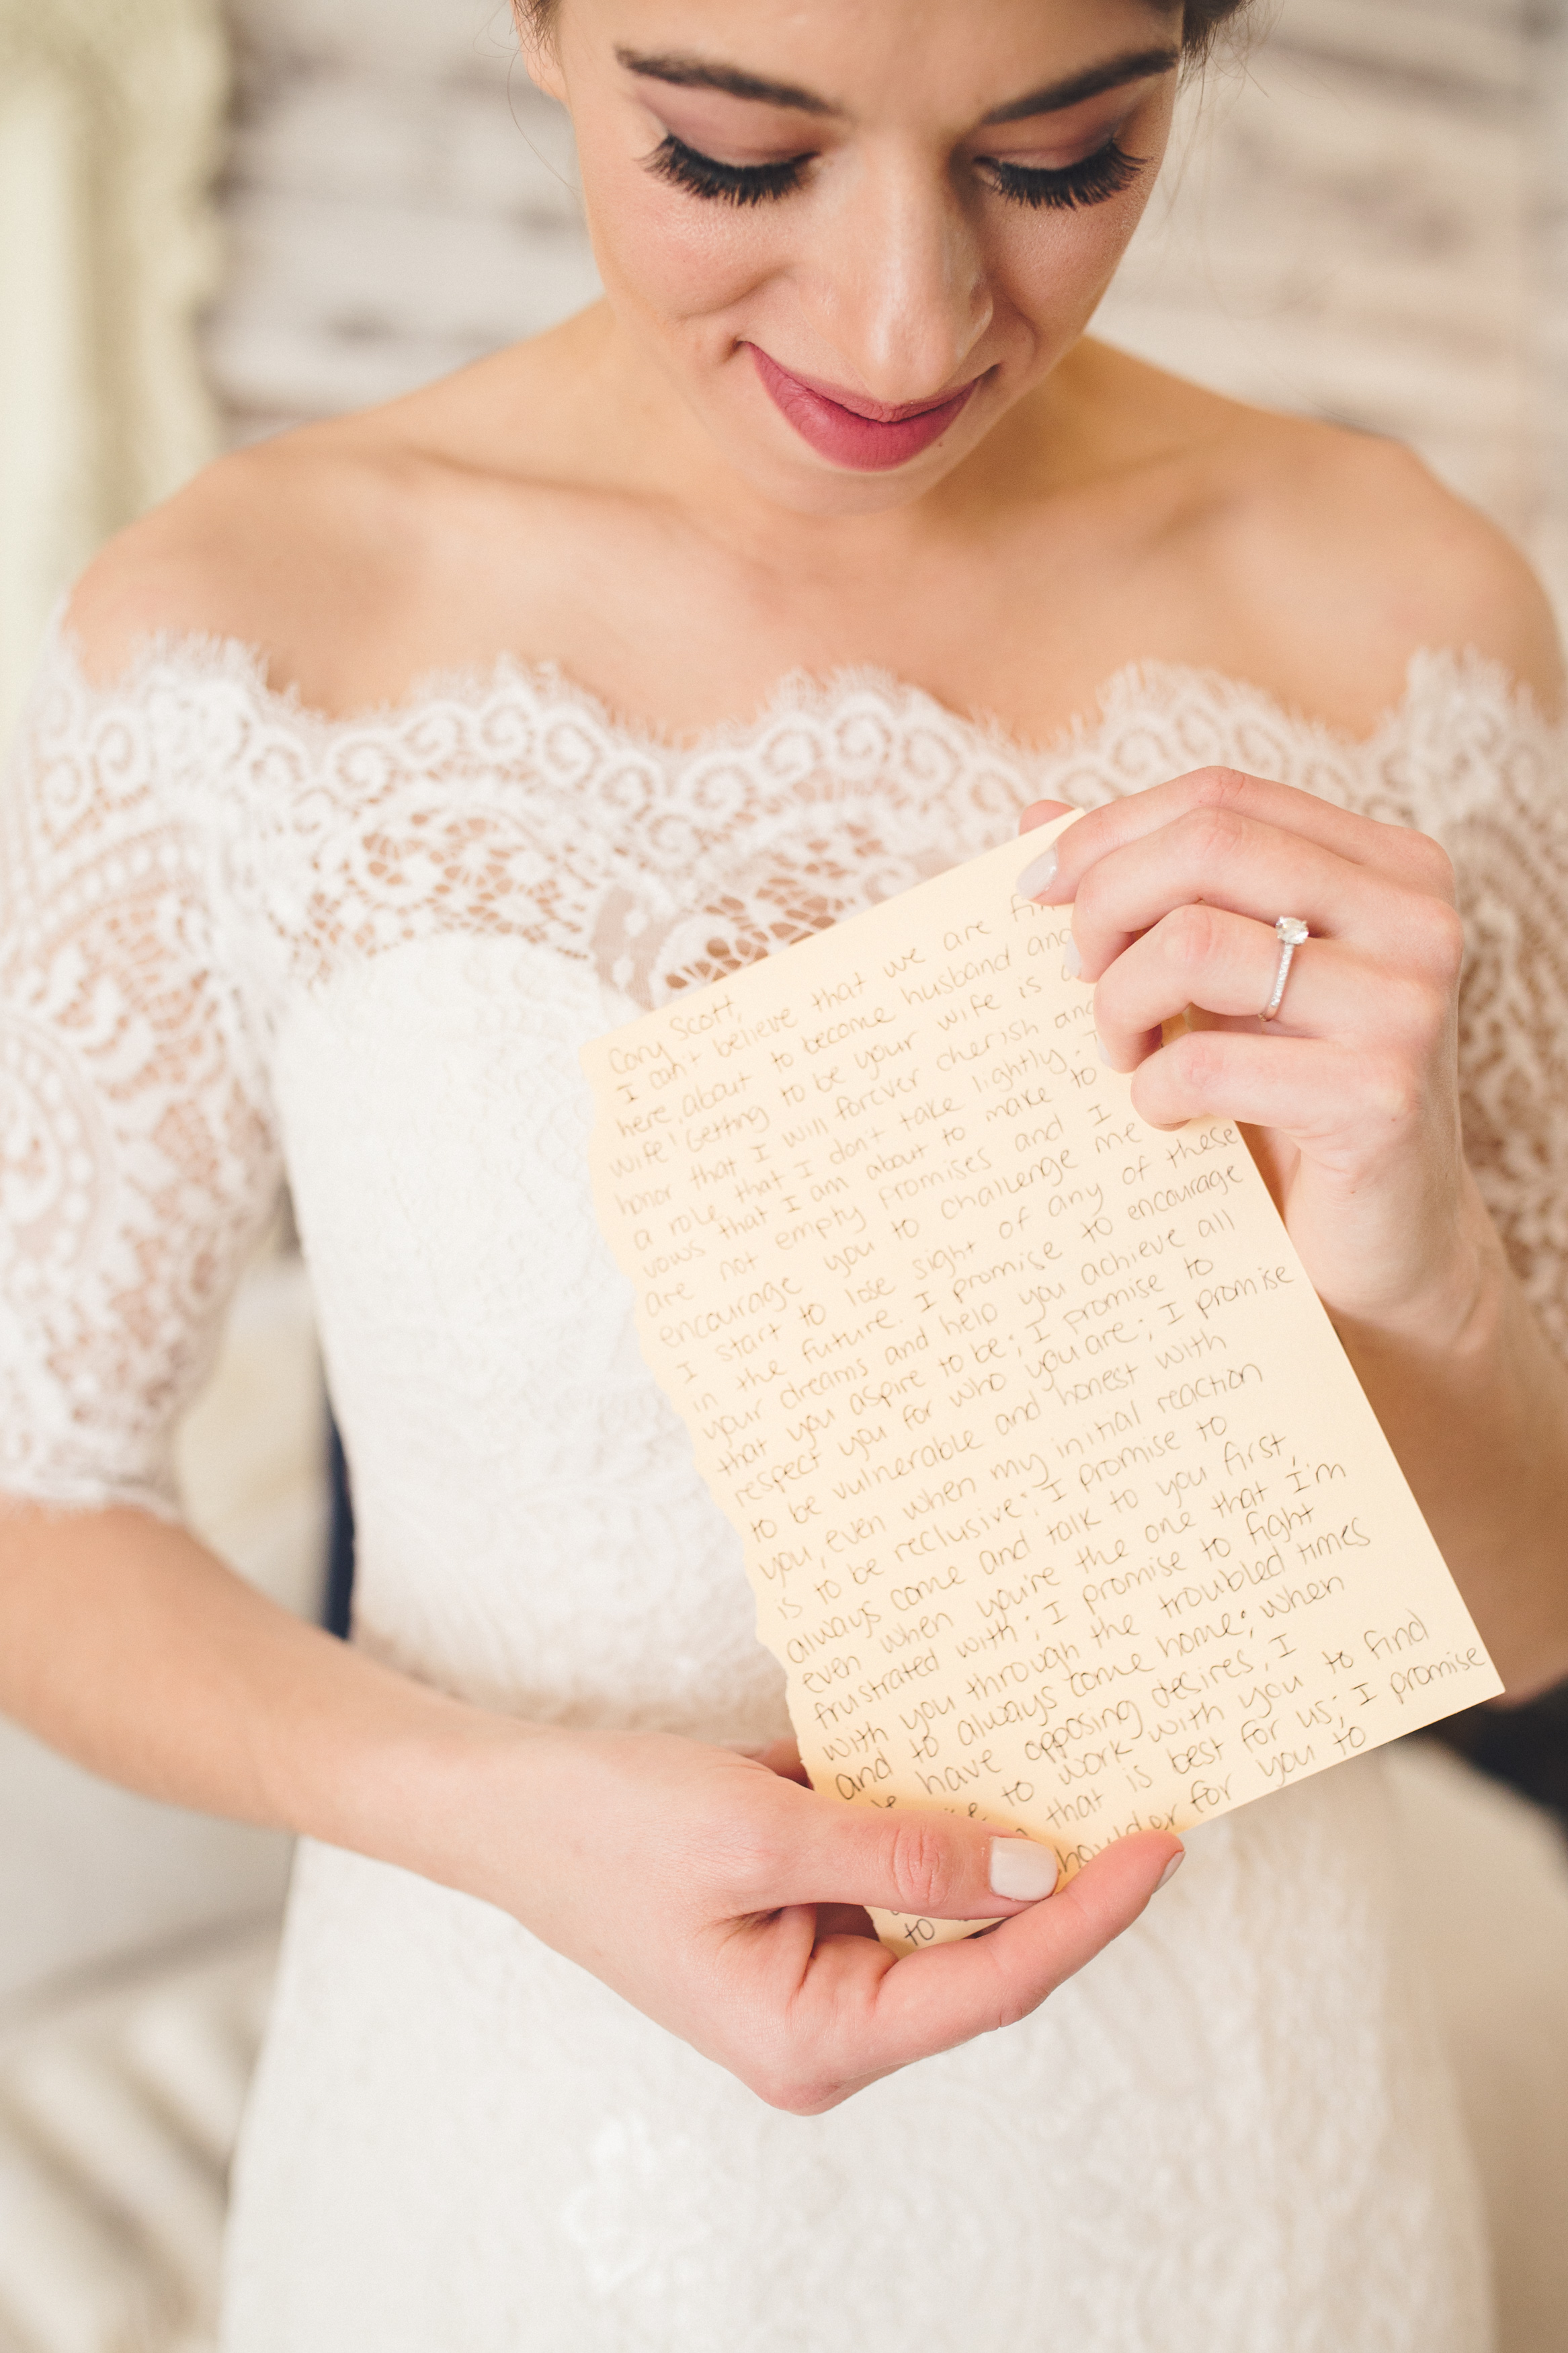 Cory Scott,
I can't believe that we are fin
here, about to become husband and
wife! Getting to be your wife is a
honor that I will forever cherish and
a role that I don't take lightly. T
vows that I am about to make to
are not empty promises and I
encourage you to challenge me
I start to lose sight of any of these
in the future. I promise to encourage
your dreams and help you achieve all
that you aspire to be; I promise to
respect you for who you are; I promise
to be vulnerable and honest with
you, even when my initial reaction
is to be reclusive; I promise to
always come and talk to you first,
even when you're the one that I'm
frustrated with; I promise to fight
with you through the troubled times
and to always come home; when
have opposing desires, I
to work with you to find
that is best for us; I promise
shoulder for you to
to